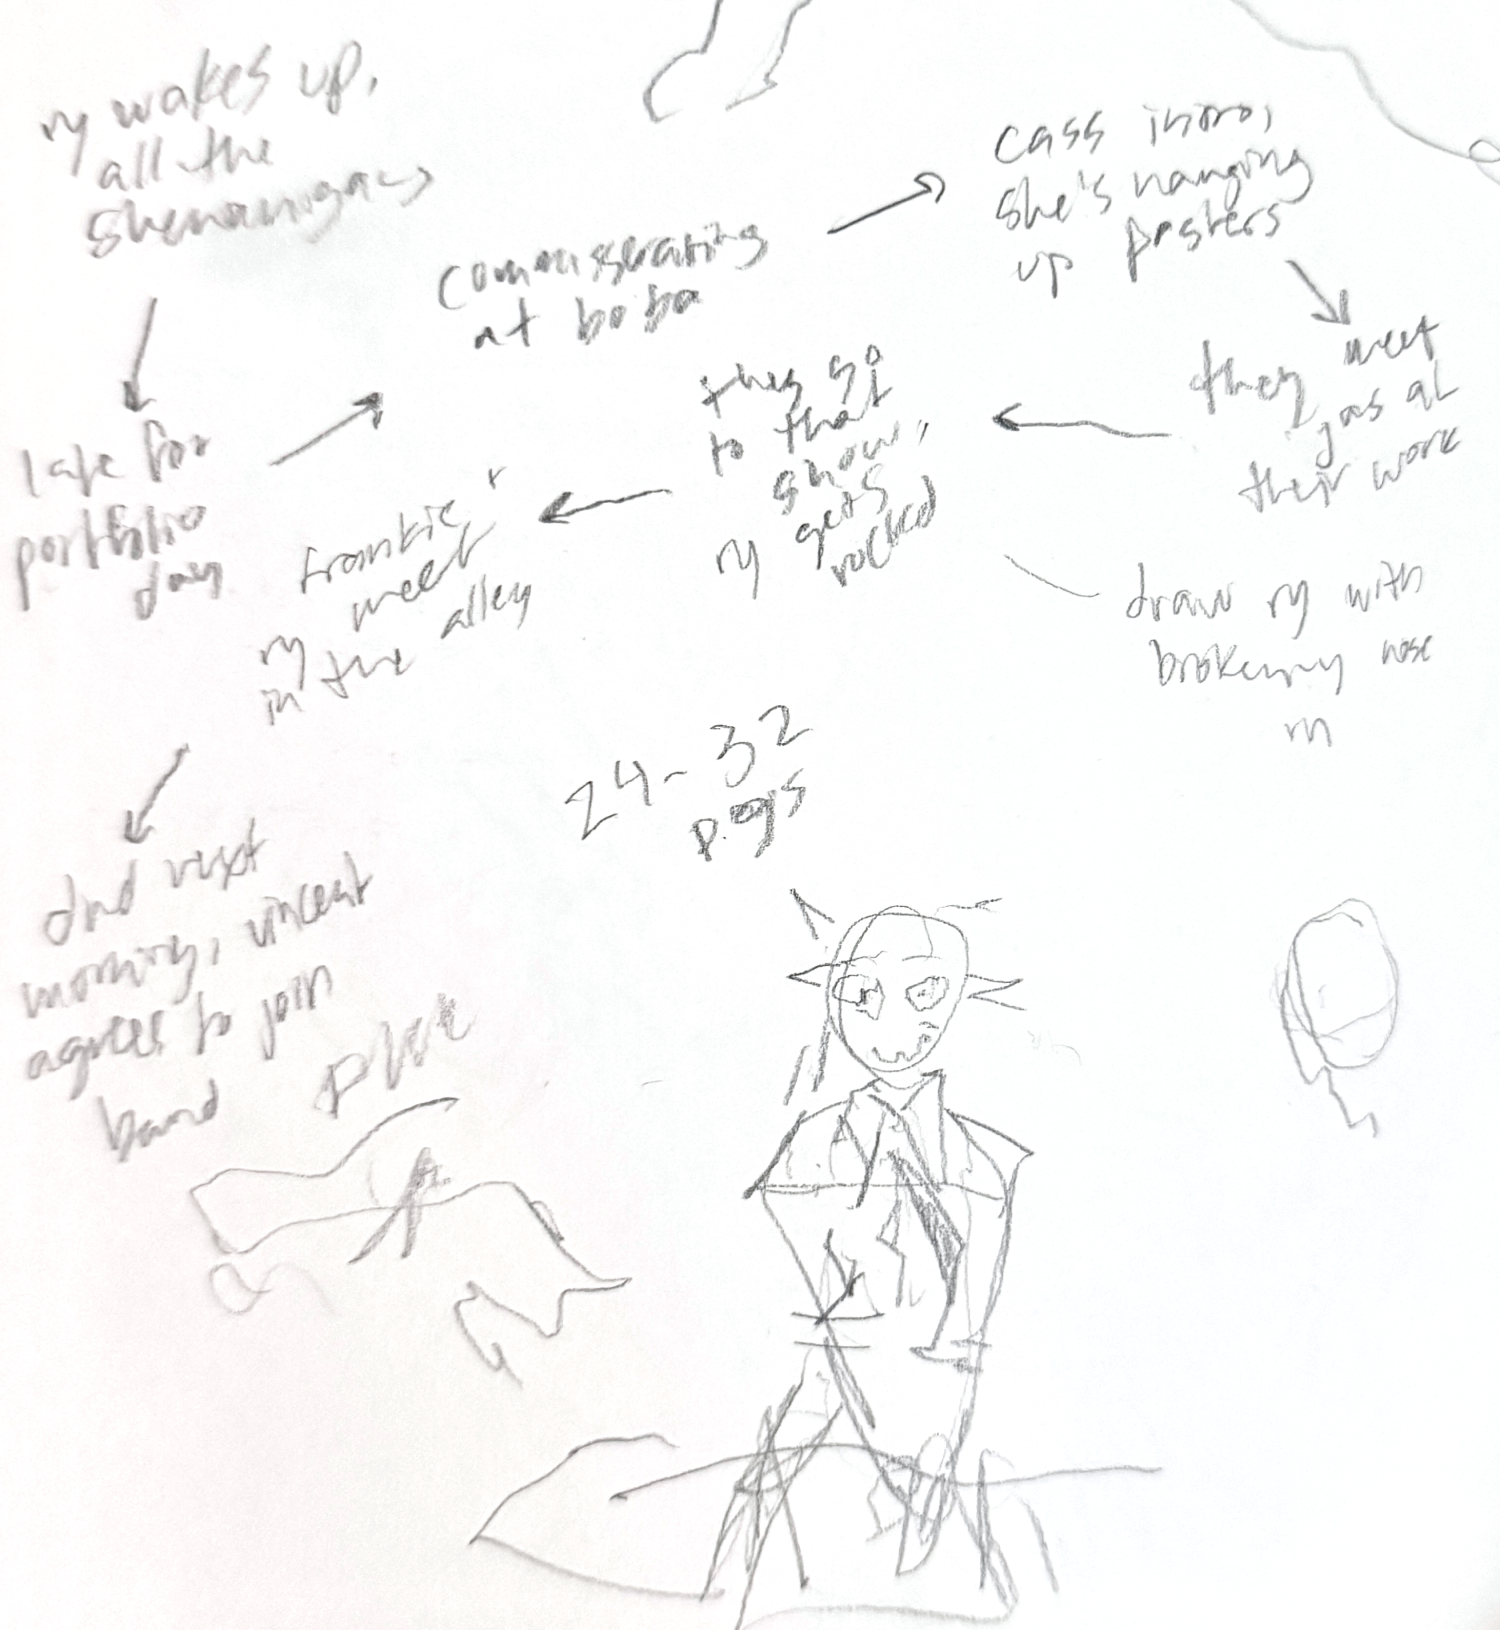 ry wakes up,
all the
shenanigans
late for
portfolio
day
commisserating
at boba
cass intro,
she's hanging
up posters
they meet
gas at
their work
they go
to that
show,
ry gets
rocked
draw ry with
broken nose
rn
frankie +
ry meet
in the alley
24-32
pgs
dnd next
morning, vincent
agrees to join
band